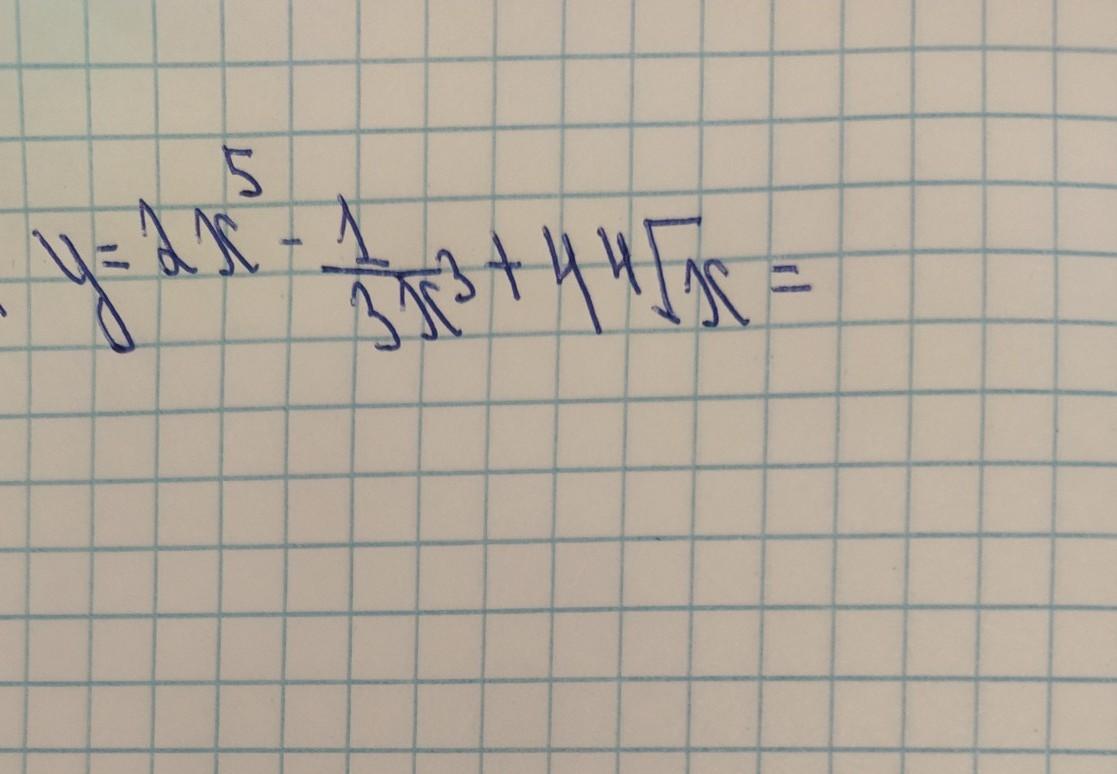 y = 2x^5 - \frac{1}{3x^3} + 4 \sqrt[4]{x} =